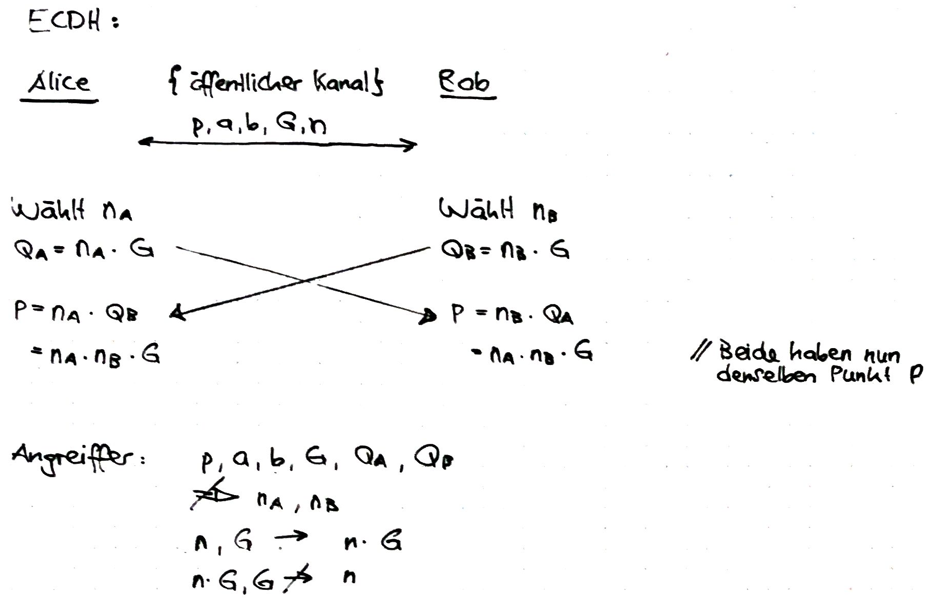 ECDH:
Alice {öffentlicher Kanal} Bob
p, a, b, G, n
Wählt nA Wählt nB
QA = nA · G QB = nB · G
P = nA · QB P = nB · QA
= nA · nB · G = nA · nB · G // Beide haben nun
denselben Punkt P
Angreiffer: p, a, b, G, QA, QB
⇏ nA, nB
n, G → n · G
n · G, G ↛ n